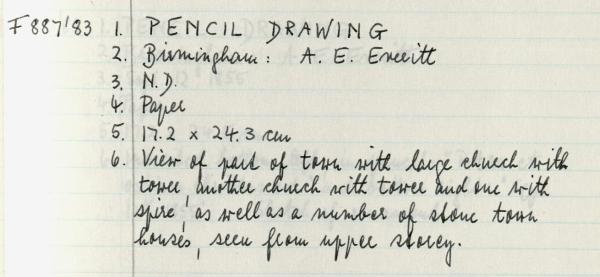 F887'83 1. PENCIL DRAWING
2. Birmingham: A. E. Everitt
3. N.D.
4. Paper
5. 17.2 x 24.3 cm
6. View of part of town with large church with
tower, another church with tower and one with
spire, as well as a number of stone town
houses, seen from upper storey.